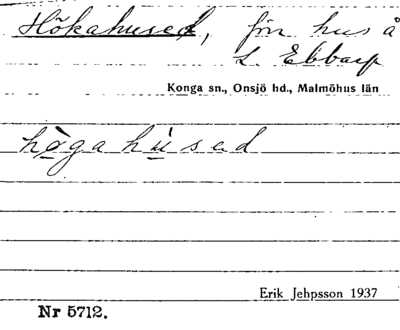 Hökahused, förr hus å
L. Ebbarp
Konga sn., Onsjö hd., Malmöhus län
högahúsəd
Erik Jehpsson 1937
Nr 5712.